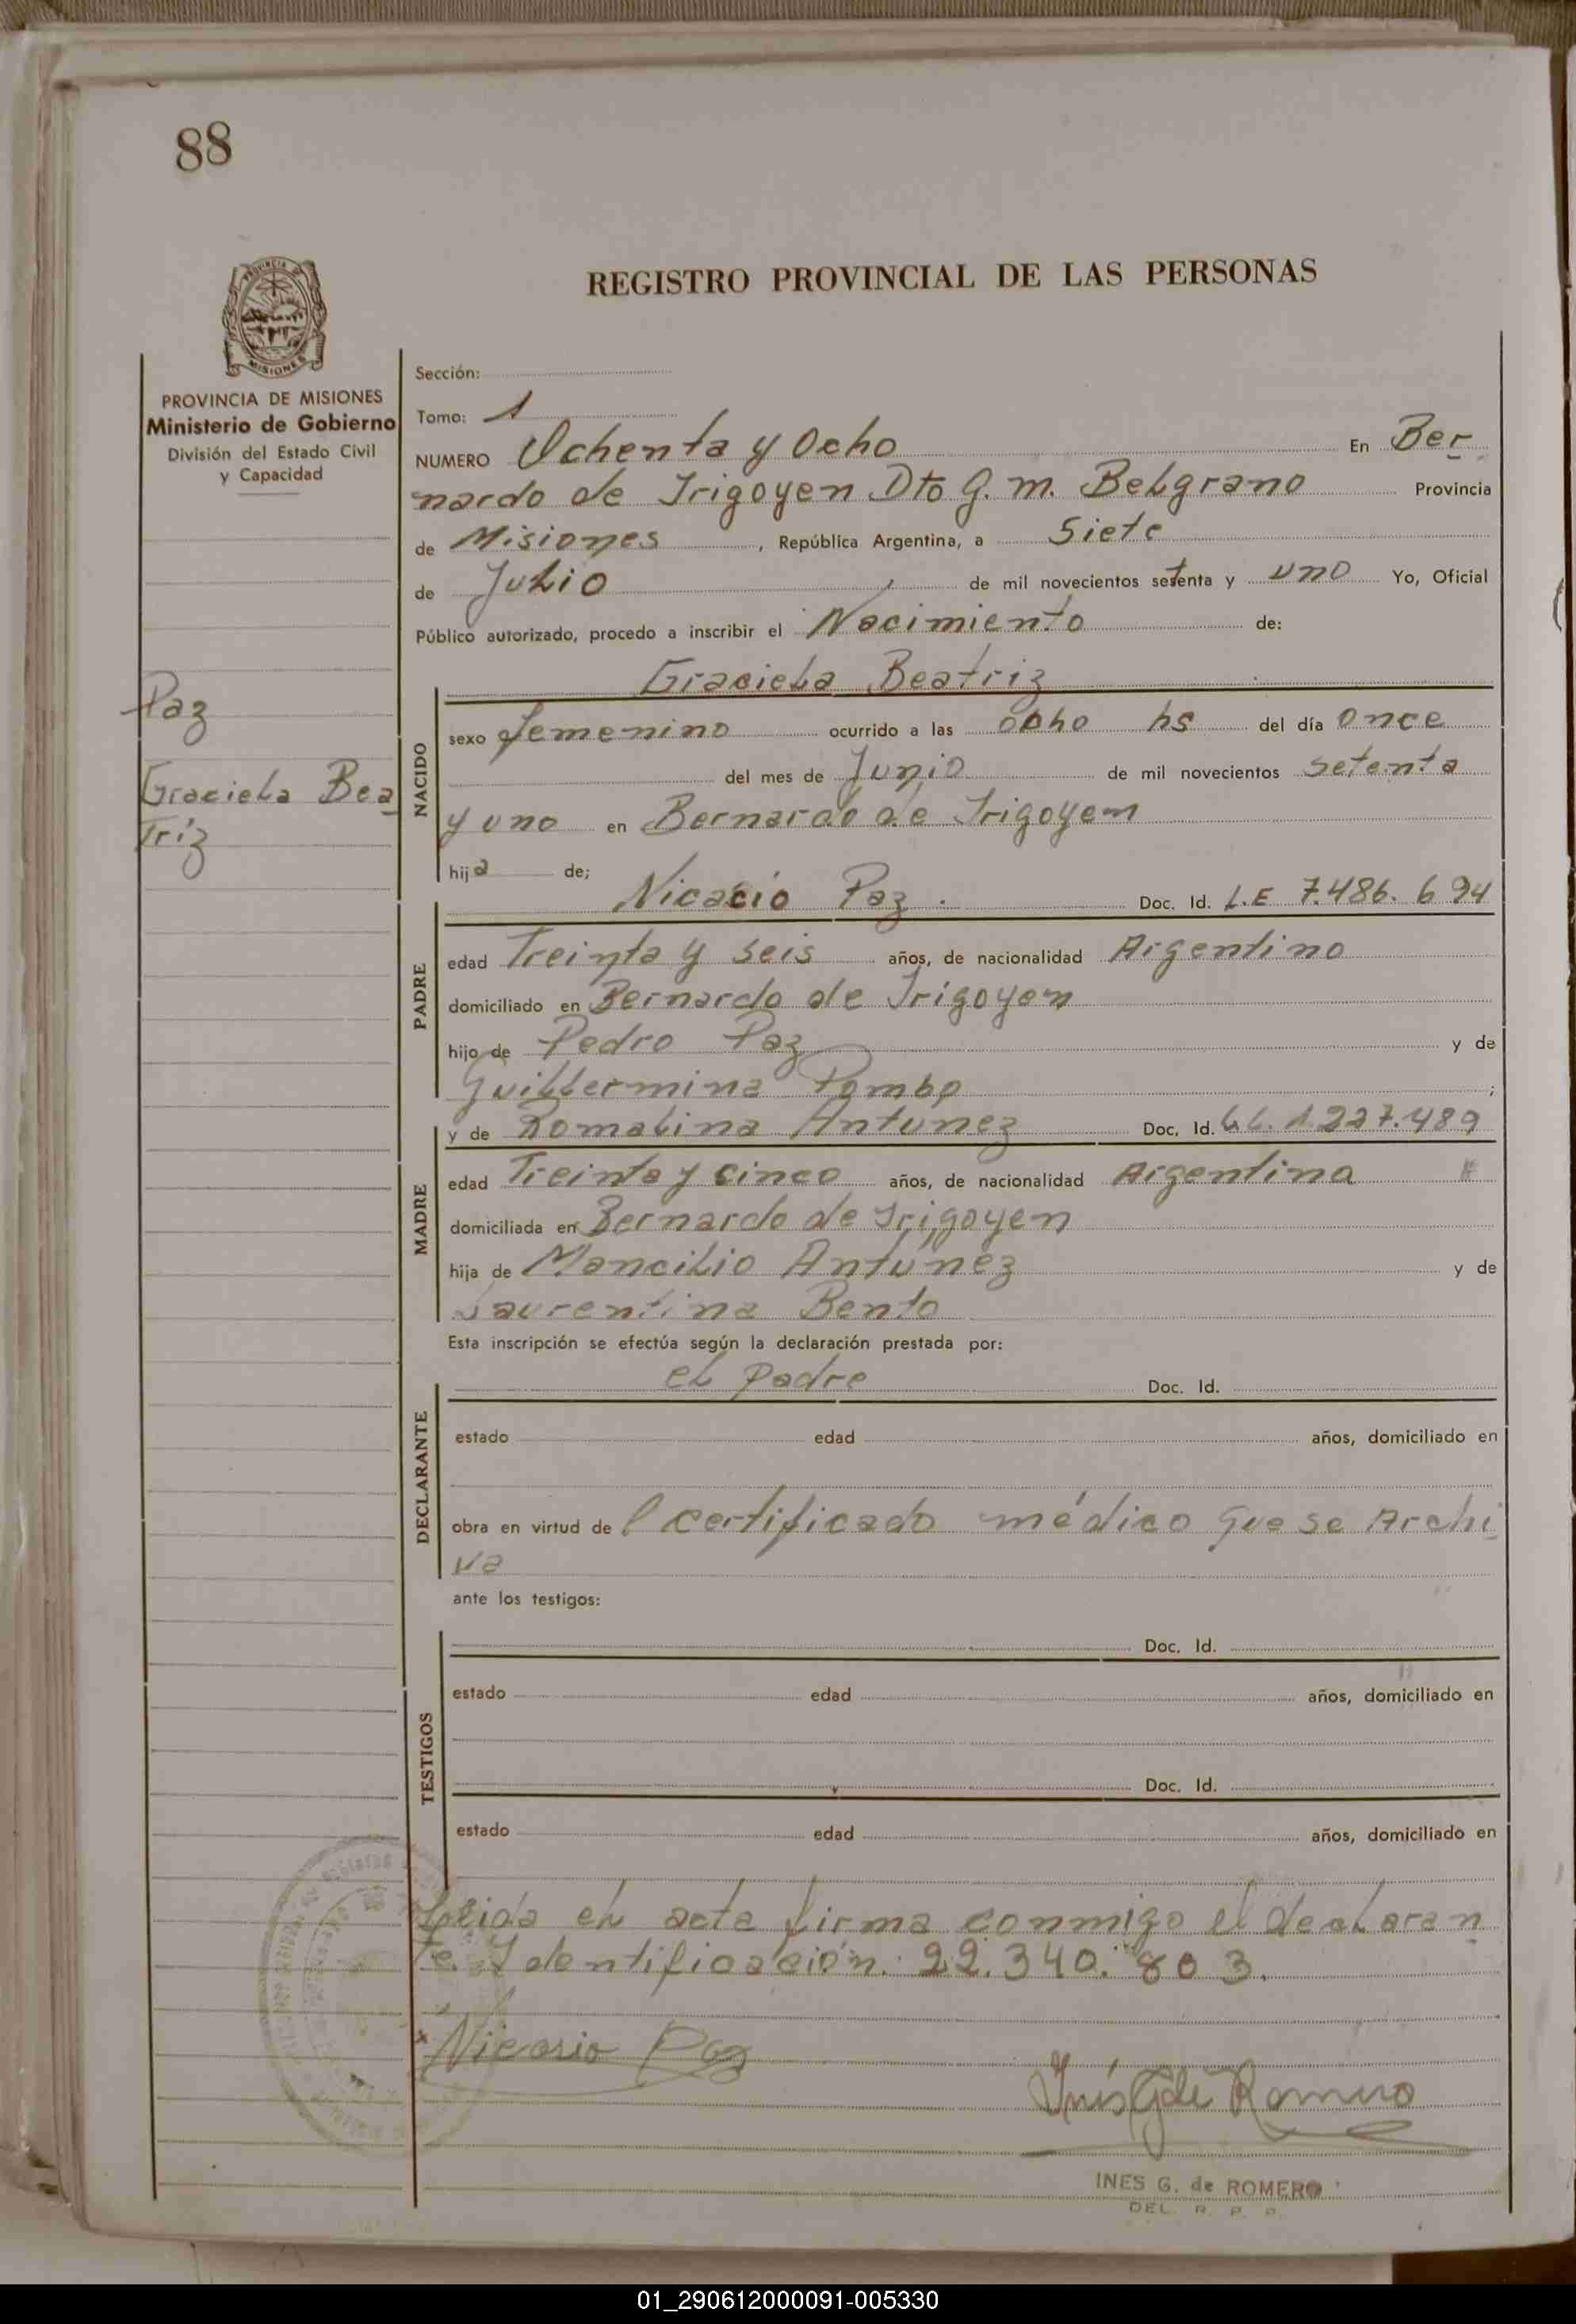 88
REGISTRO PROVINCIAL DE LAS PERSONAS
PROVINCIA DE
MISIONES
PROVINCIA DE MISIONES
Ministerio de Gobierno
División del Estado Civil
y Capacidad
Paz
Graciela Bea
triz
Sección:
Tomo: 1
NUMERO Ochenta y Ocho En Ber
nardo de Irigoyen Dto G. M. Belgrano Provincia
de Misiones, República Argentina, a Siete
de Julio de mil novecientos setenta y uno Yo, Oficial
Público autorizado, procedo a inscribir el Nacimiento de:
Graciela Beatriz
NACIDO
sexo femenino ocurrido a las ocho hs del día once
del mes de Junio de mil novecientos setenta
y uno en Bernardo de Irigoyen
hija de;
Nicasio Paz. Doc. Id. L.E 7.486.694
PADRE
edad Treinta y seis años, de nacionalidad Argentino
domiciliado en Bernardo de Irigoyen
hijo de Pedro Paz y de
Guillermina Pombo;
y de Romalina Antunez Doc. Id. 1.227.489
MADRE
edad Treinta y cinco años, de nacionalidad Argentina
domiciliada en Bernardo de Irigoyen
hija de Mancilio Antúnez y de
Laurentina Bento
Esta inscripción se efectúa según la declaración prestada por:
el padre Doc. Id.
DECLARANTE
estado edad años, domiciliado en
obra en virtud de l certificado médico que se Archi
va
ante los testigos:
Doc. Id.
TESTIGOS
estado edad años, domiciliado en
Doc. Id.
estado edad años, domiciliado en
Leida el acta firma conmigo el declaran
te. Identificación. 22.340.803.
Nicasio Paz
Inés G de Romero
INES G. de ROMERO
DEL. R. P. P.
01_290612000091-005330